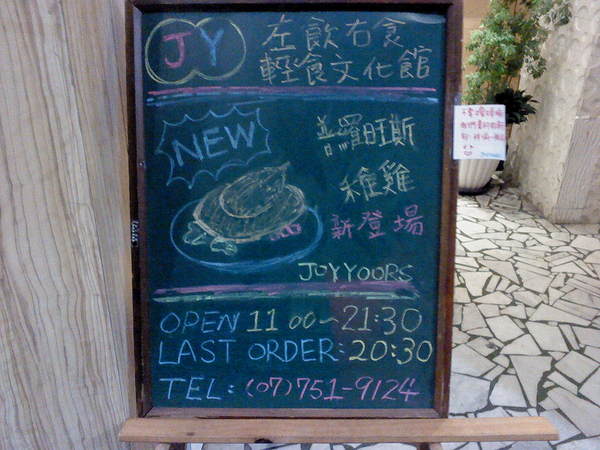 JY 左飲右食
輕食文化館
NEW
普羅旺斯
稚雞
新登場
JOYYOORS
OPEN 11 00~21:30
LAST ORDER:20:30
TEL:(07)751-9124